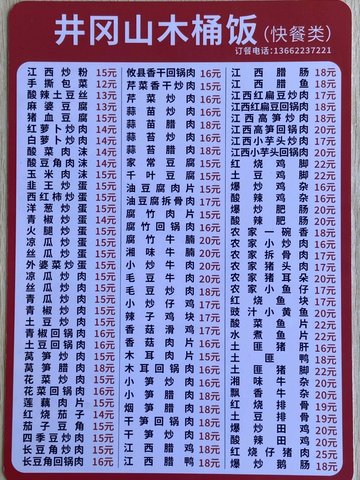 井冈山木桶饭(快餐类)
订餐电话:13662237221
江西炒粉 15元
手撕包菜 12元
酸辣土豆丝 13元
麻婆豆腐 13元
猪血豆腐 15元
红萝卜炒肉 14元
白萝卜炒肉 14元
酸菜肉沫 14元
酸豆角肉沫 14元
玉米肉沫 15元
韭王炒蛋 15元
西红柿炒蛋 15元
洋葱炒蛋 15元
青椒炒蛋 14元
火腿炒蛋 15元
凉瓜炒蛋 15元
丝瓜炒蛋 15元
外婆菜炒蛋 15元
凉瓜炒肉 15元
丝瓜炒肉 15元
青瓜炒肉 15元
土豆炒肉 15元
青椒回锅肉 16元
土豆回锅肉 16元
莴笋炒肉 15元
莴笋腊肉 18元
花菜炒肉 15元
花菜回锅肉 16元
莲藕肉片 15元
红烧茄子 14元
茄子豆角 15元
四季豆炒肉 15元
长豆角炒肉 15元
长豆角回锅肉 16元
攸县香干回锅肉 16元
芹菜香干炒肉 15元
芹菜炒肉 16元
蒜苗炒肉 16元
蒜苔腊肉 18元
蒜苗腊肉 18元
蒜苔炒肉 16元
家常豆腐 15元
千叶豆腐 15元
油豆腐肉片 15元
油豆腐拆骨肉 17元
腐竹肉片 15元
腐竹回锅肉 16元
腐竹牛腩 20元
湘味牛腩 20元
小炒牛肉 20元
毛豆牛肉 20元
毛豆炒肉 18元
小炒仔鸡 17元
辣子鸡块 17元
香菇滑鸡 17元
香菇肉片 15元
木耳肉片 15元
木耳回锅肉 16元
小笋炒肉 16元
小笋腊肉 18元
烟笋腊肉 18元
干笋回锅肉 18元
干笋炒肉 18元
江西腊鸡 18元
江西腊鸭 18元
江西腊肠 18元
江西腊鱼 18元
江西红扁豆炒肉 18元
江西红扁豆回锅肉 18元
江西高笋炒肉 18元
江西高笋回锅肉 20元
江西小芋头炒肉 17元
江西小芋头回锅肉 20元
红烧鸡 22元
土豆鸡 22元
爆炒鸡杂 16元
酸辣鸡杂 16元
爆炒肥肠 20元
酸辣肥肠 20元
农家一碗香 18元
农家小炒肉 16元
农家拆骨肉 17元
农家猪头肉 17元
农家猪耳朵 20元
农家小鱼仔 17元
红烧鱼块 17元
豉汁小黄鱼 20元
酸菜鱼片 22元
水煮鱼片 22元
土匪猪肝 16元
土匪鸭 18元
土匪猪脚 22元
湘味牛杂 20元
飘香牛杂 20元
红烧排骨 19元
土豆排骨 19元
爆炒田鸡 20元
酸辣田鸡 20元
红烧仔猪肉 25元
爆炒鹅肠 18元